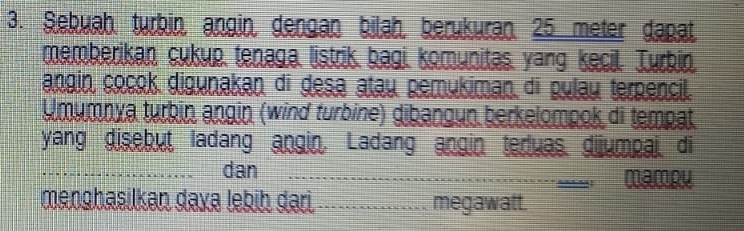 3. Sebuah turbin angin dengan bilah berukuran 25 meter dapat
memberikan cukup tenaga listrik bagi komunitas yang kecil. Turbin
angin cocok digunakan di desa atau pemukiman di pulau terpencil.
Umumnya turbin angin (wind turbine) dibangun berkelompok di tempat
yang disebut ladang angin. Ladang angin terluas dijumpai di
.................... dan ........................................, mampu
menghasilkan daya lebih dari ............... megawatt.